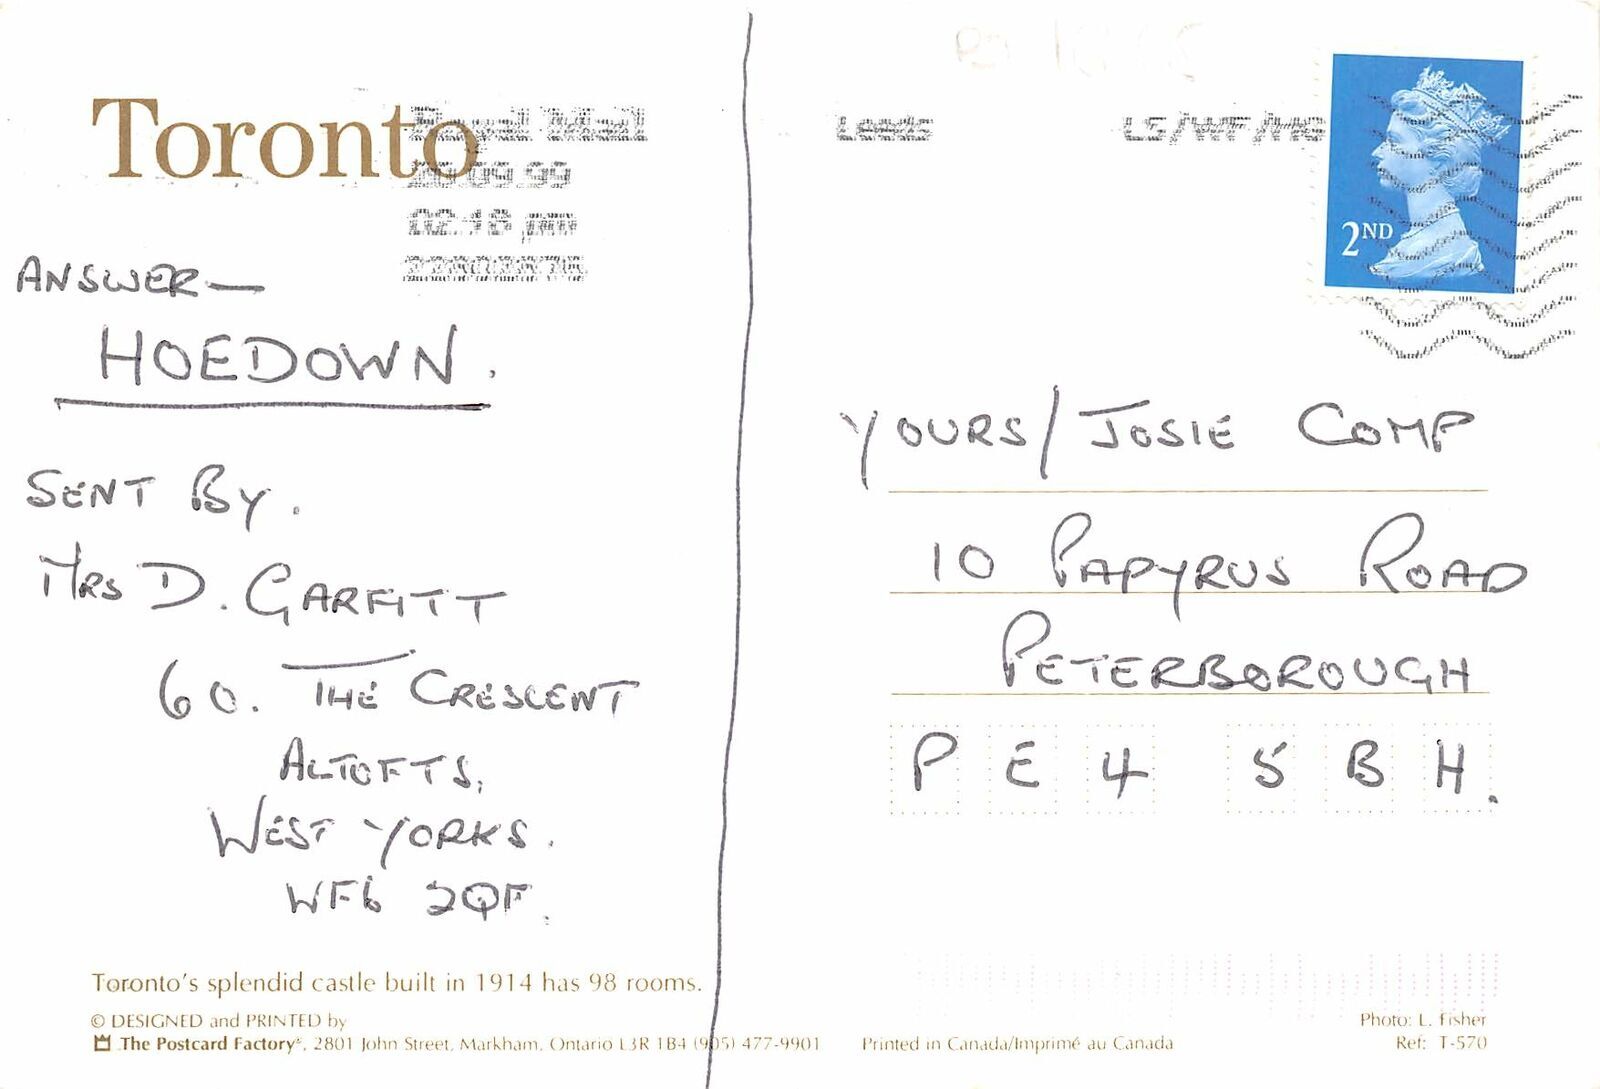 Toronto
Royal Mail
02:16 pm
ANSWER—
HOEDOWN.
SENT BY.
MRS D. GARFITT
60. THE CRESCENT
ALTOFTS,
WEST YORKS.
WF6 2QF.
Toronto's splendid castle built in 1914 has 98 rooms.
© DESIGNED and PRINTED by
The Postcard Factory®, 2801 John Street, Markham, Ontario L3R 1B4 (905) 477-9901
Leeds
2ND
YOURS/JOSIE COMP
10 PAPYRUS ROAD
PETERBOROUGH
PE4 5BH.
Printed in Canada/Imprimé au Canada
Photo: L. Fisher
Ref: T-570